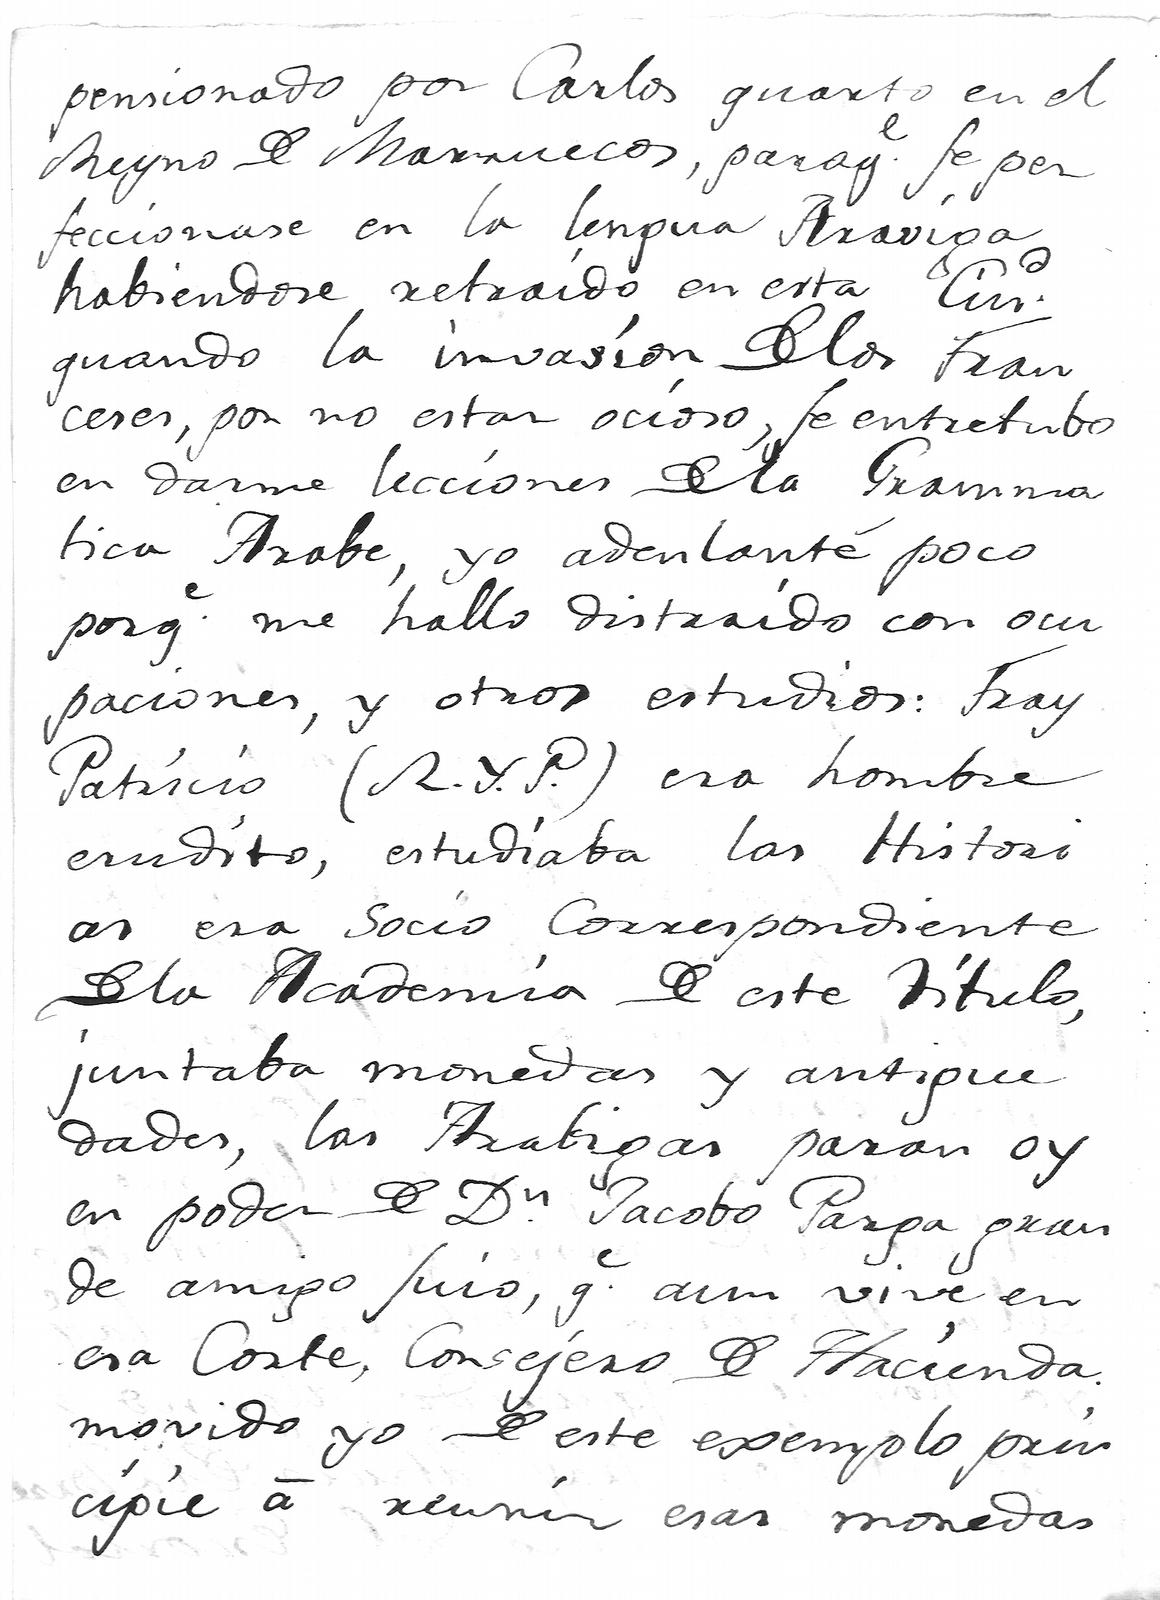 pensionado por Carlos quarto en el
Reyno de Marruecos, paraq.e se per
feccionase en la lengua Araviga
habiendose retraido en esta Ciu.d
quando la invasion delos Fran
ceses, por no estar ocioso, se entretubo
en darme lecciones dela Gramma
tica Arabe, yo adenlanté poco
porq.e me hallo distraido con ocu
paciones, y otros estudios: Fray
Patricio (R.Y.P.) era hombre
erudito, estudiaba las Histori
as era Socio Correspondiente
dela Academia de este Titulo,
juntaba monedas y antigue
dades, las Arabigas paran oy
en poder de D.n Jacobo Parga gran
de amigo suio, q.e aun vive en
esa Corte, Consejero de Hacienda.
movido yo de este exemplo prin
cipie ā reunir esas monedas